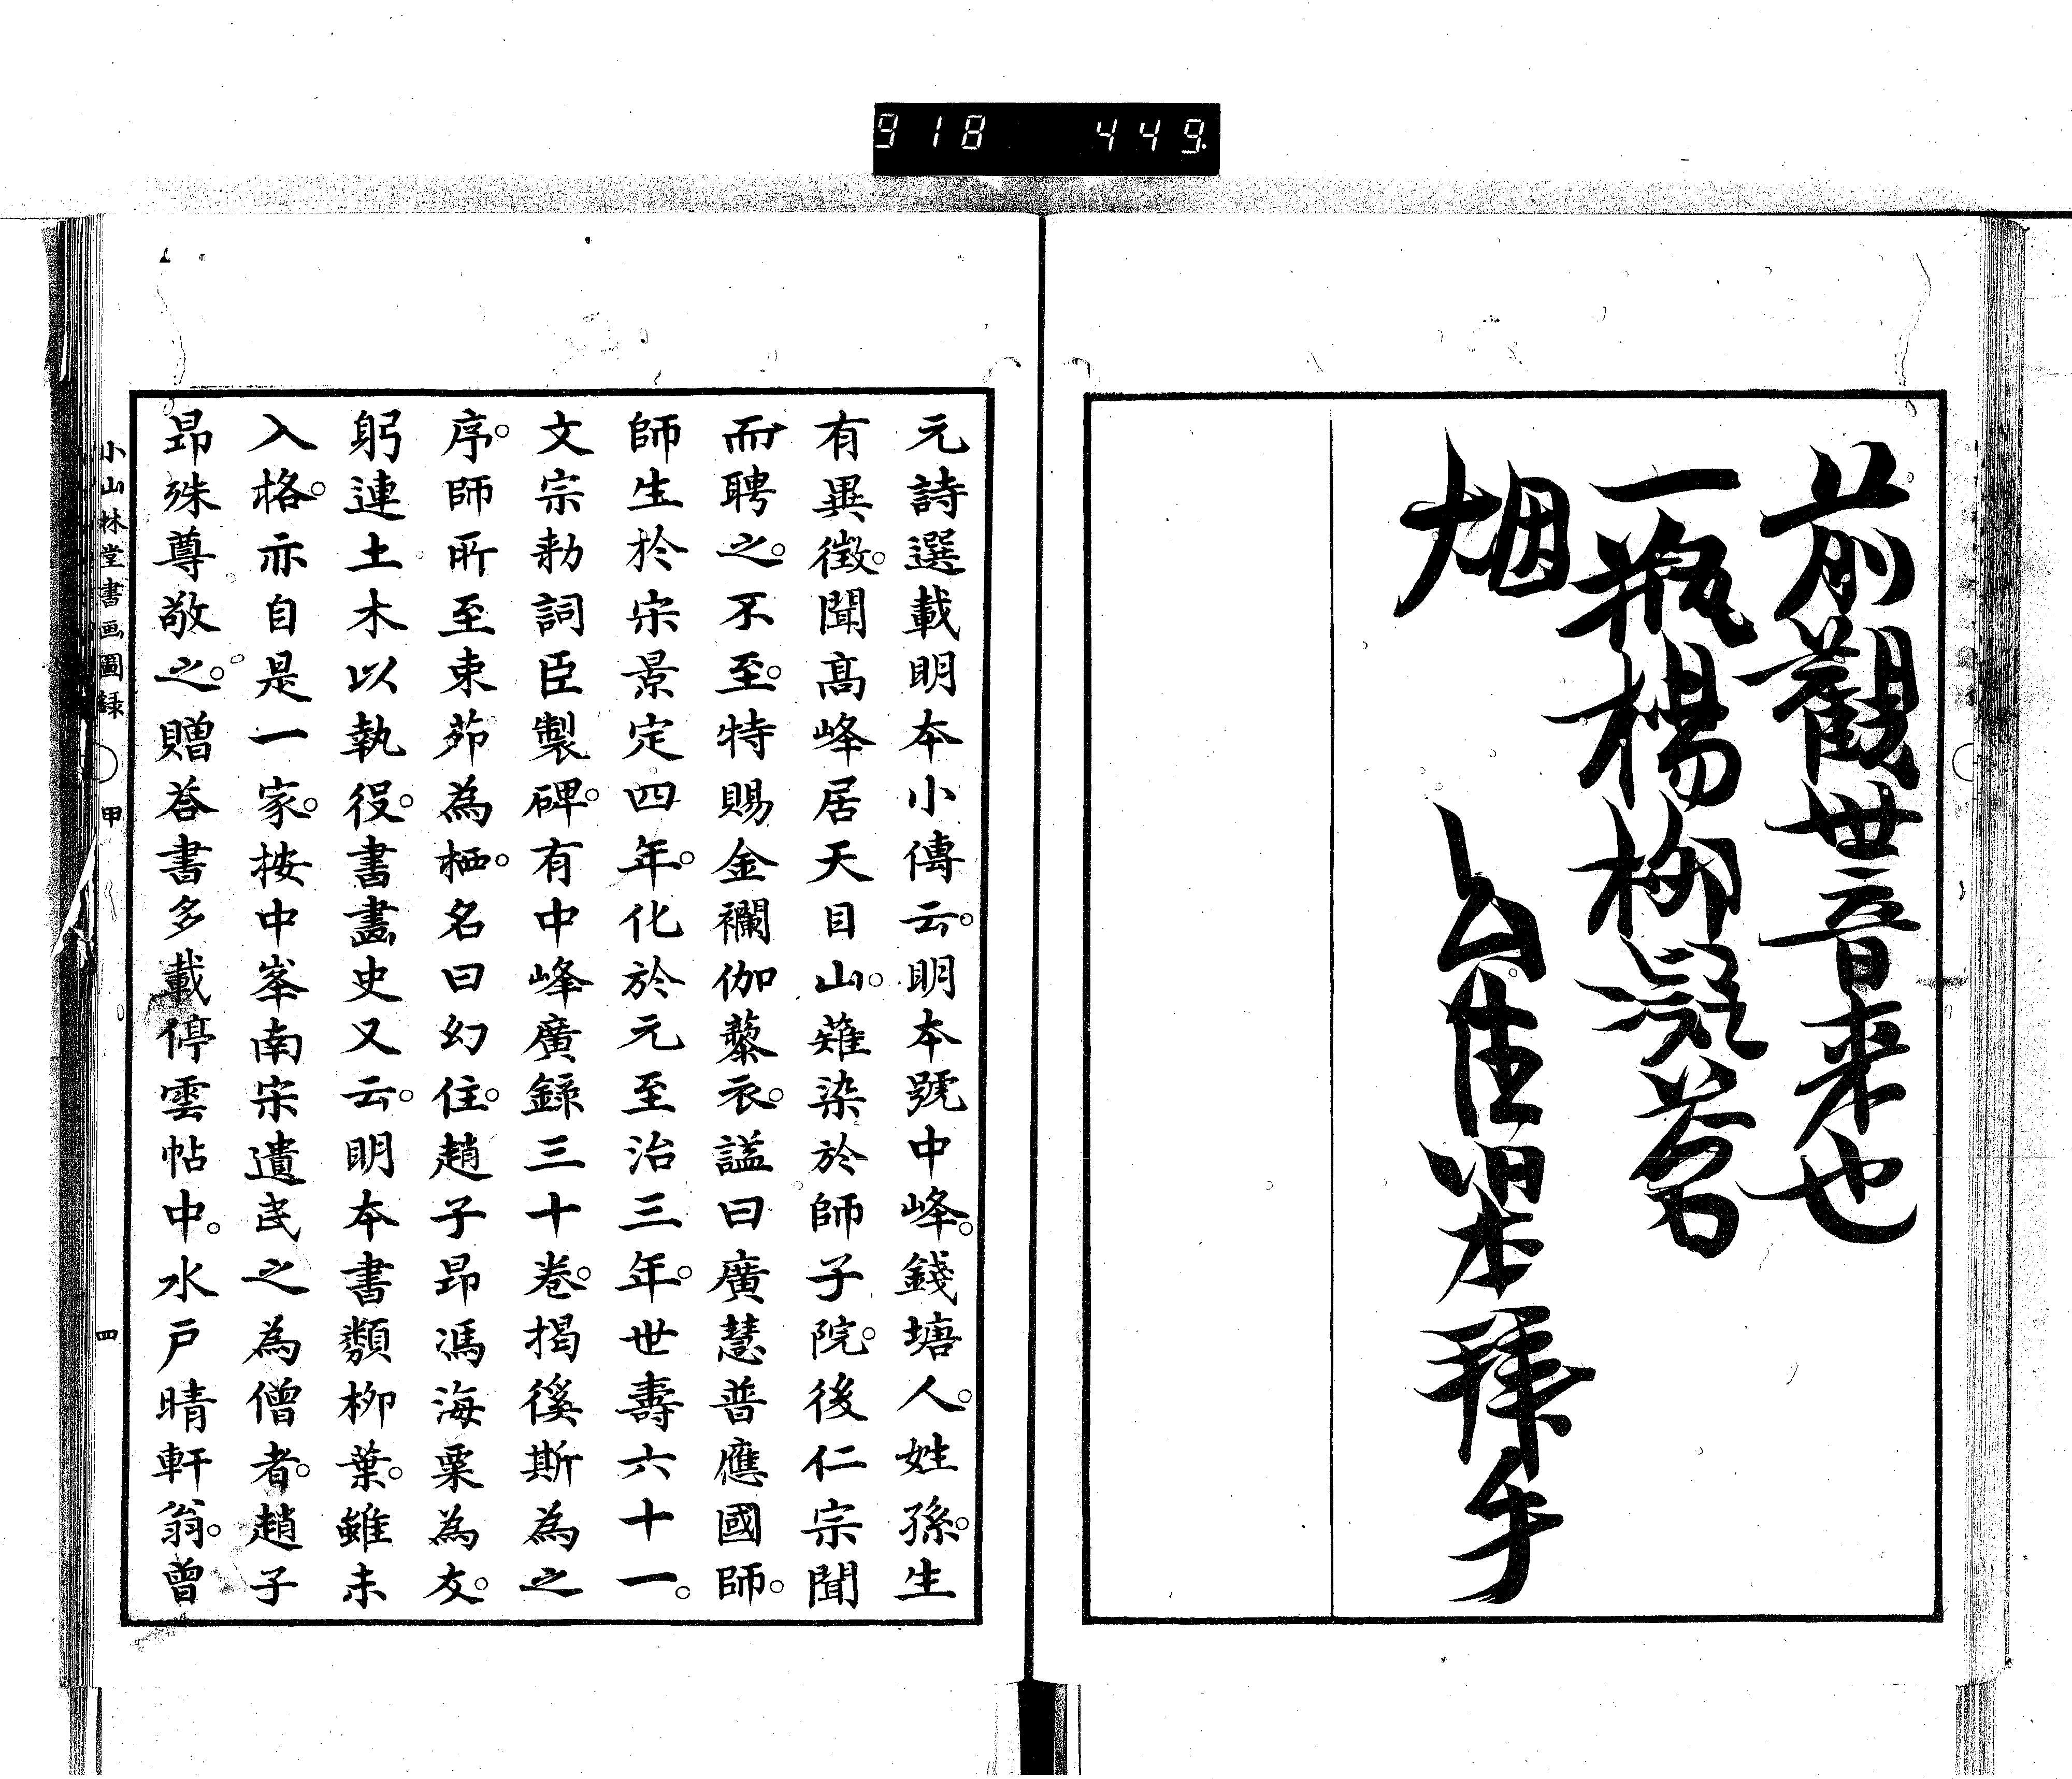 918 449.
前觀世音来也
一瓶楊柳凝茗
烟
幻住明本拜手
元詩選載明本小傳云。明本號中峰。錢塘人。姓孫。生
有異徵。聞高峰居天目山。薙染於師子院。後仁宗聞
而聘之。不至。特賜金襴伽藜衣。謚曰廣慧普應國師。
師生於宋景定四年。化於元至治三年。世壽六十一。
文宗勅詞臣製碑。有中峰廣錄三十卷。揭徯斯為之
序。師所至束茆為栖。名曰幻住。趙子昂馮海粟為友。
躬連土木以執役。書畫史又云。明本書類柳葉。雖未
入格。亦自是一家。按中峯南宋遺民之為僧者。趙子
昂殊尊敬之。贈荅書多載停雲帖中。水戶晴軒翁。曾
小山林堂書画圖録 甲 四